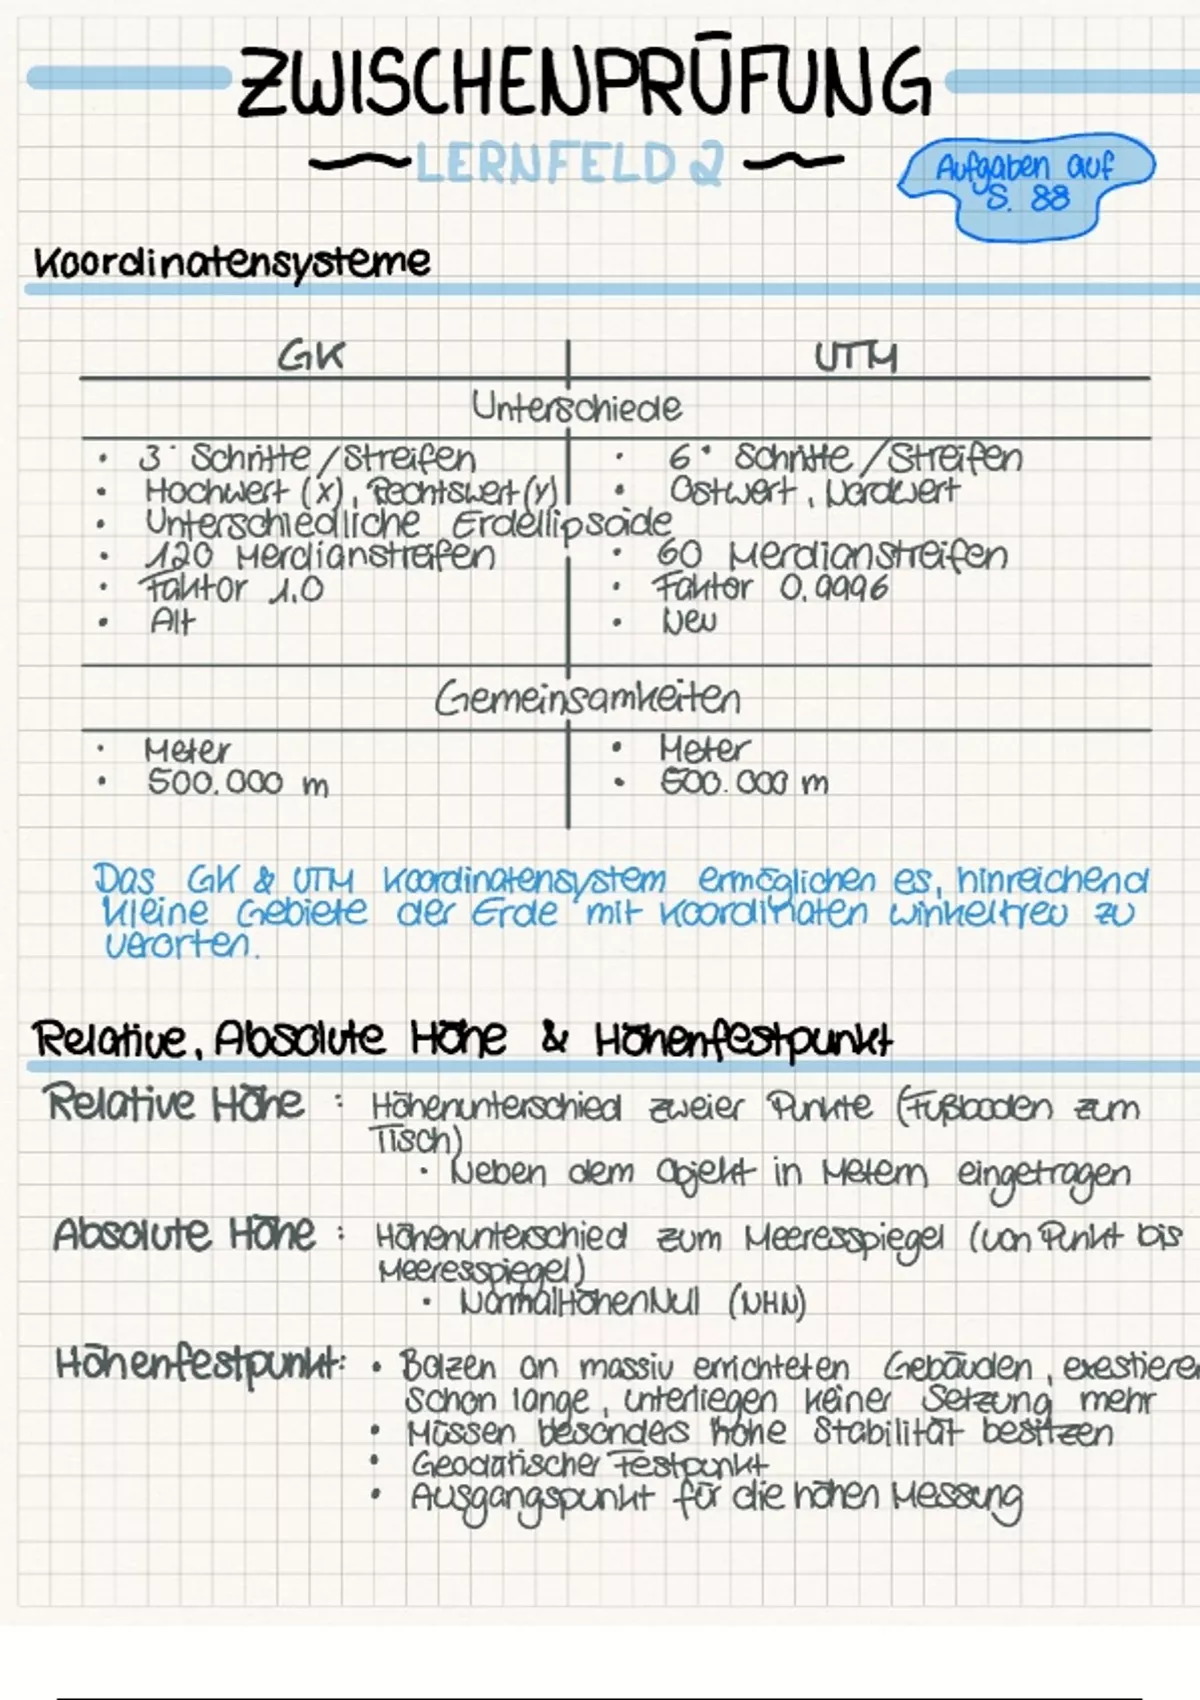 ZWISCHENPRÜFUNG
LERNFELD 2
Aufgaben auf
S. 88
Koordinatensysteme
GK UTM
Unterschiede
• 3° Schritte/Streifen • 6° Schritte/Streifen
• Hochwert (x), Rechtswert (y) • Ostwert, Nordwert
• Unterschiedliche Erdellipsoide
• 120 Merdianstreifen • 60 Merdianstreifen
• Faktor 1.0 • Faktor 0,9996
• Alt • Neu
Gemeinsamkeiten
• Meter • Meter
• 500.000 m • 500.000 m
Das GK & UTM Koordinatensystem ermöglichen es, hinreichend
kleine Gebiete der Erde mit Koordinaten winkeltreu zu
verorten.
Relative, Absolute Höhe & Höhenfestpunkt
Relative Höhe : Höhenunterschied zweier Punkte (Fußboden zum
Tisch)
• Neben dem Objekt in Metern eingetragen
Absolute Höhe : Höhenunterschied zum Meeresspiegel (von Punkt bis
Meeresspiegel)
• NormalHöhenNull (NHN)
Höhenfestpunkt: • Bolzen an massiv errichteten Gebäuden, exestieren
schon lange, unterliegen keiner Setzung mehr
• Müssen besonders hohe Stabilität besitzen
• Geodätischer Festpunkt
• Ausgangspunkt für die höhen Messung